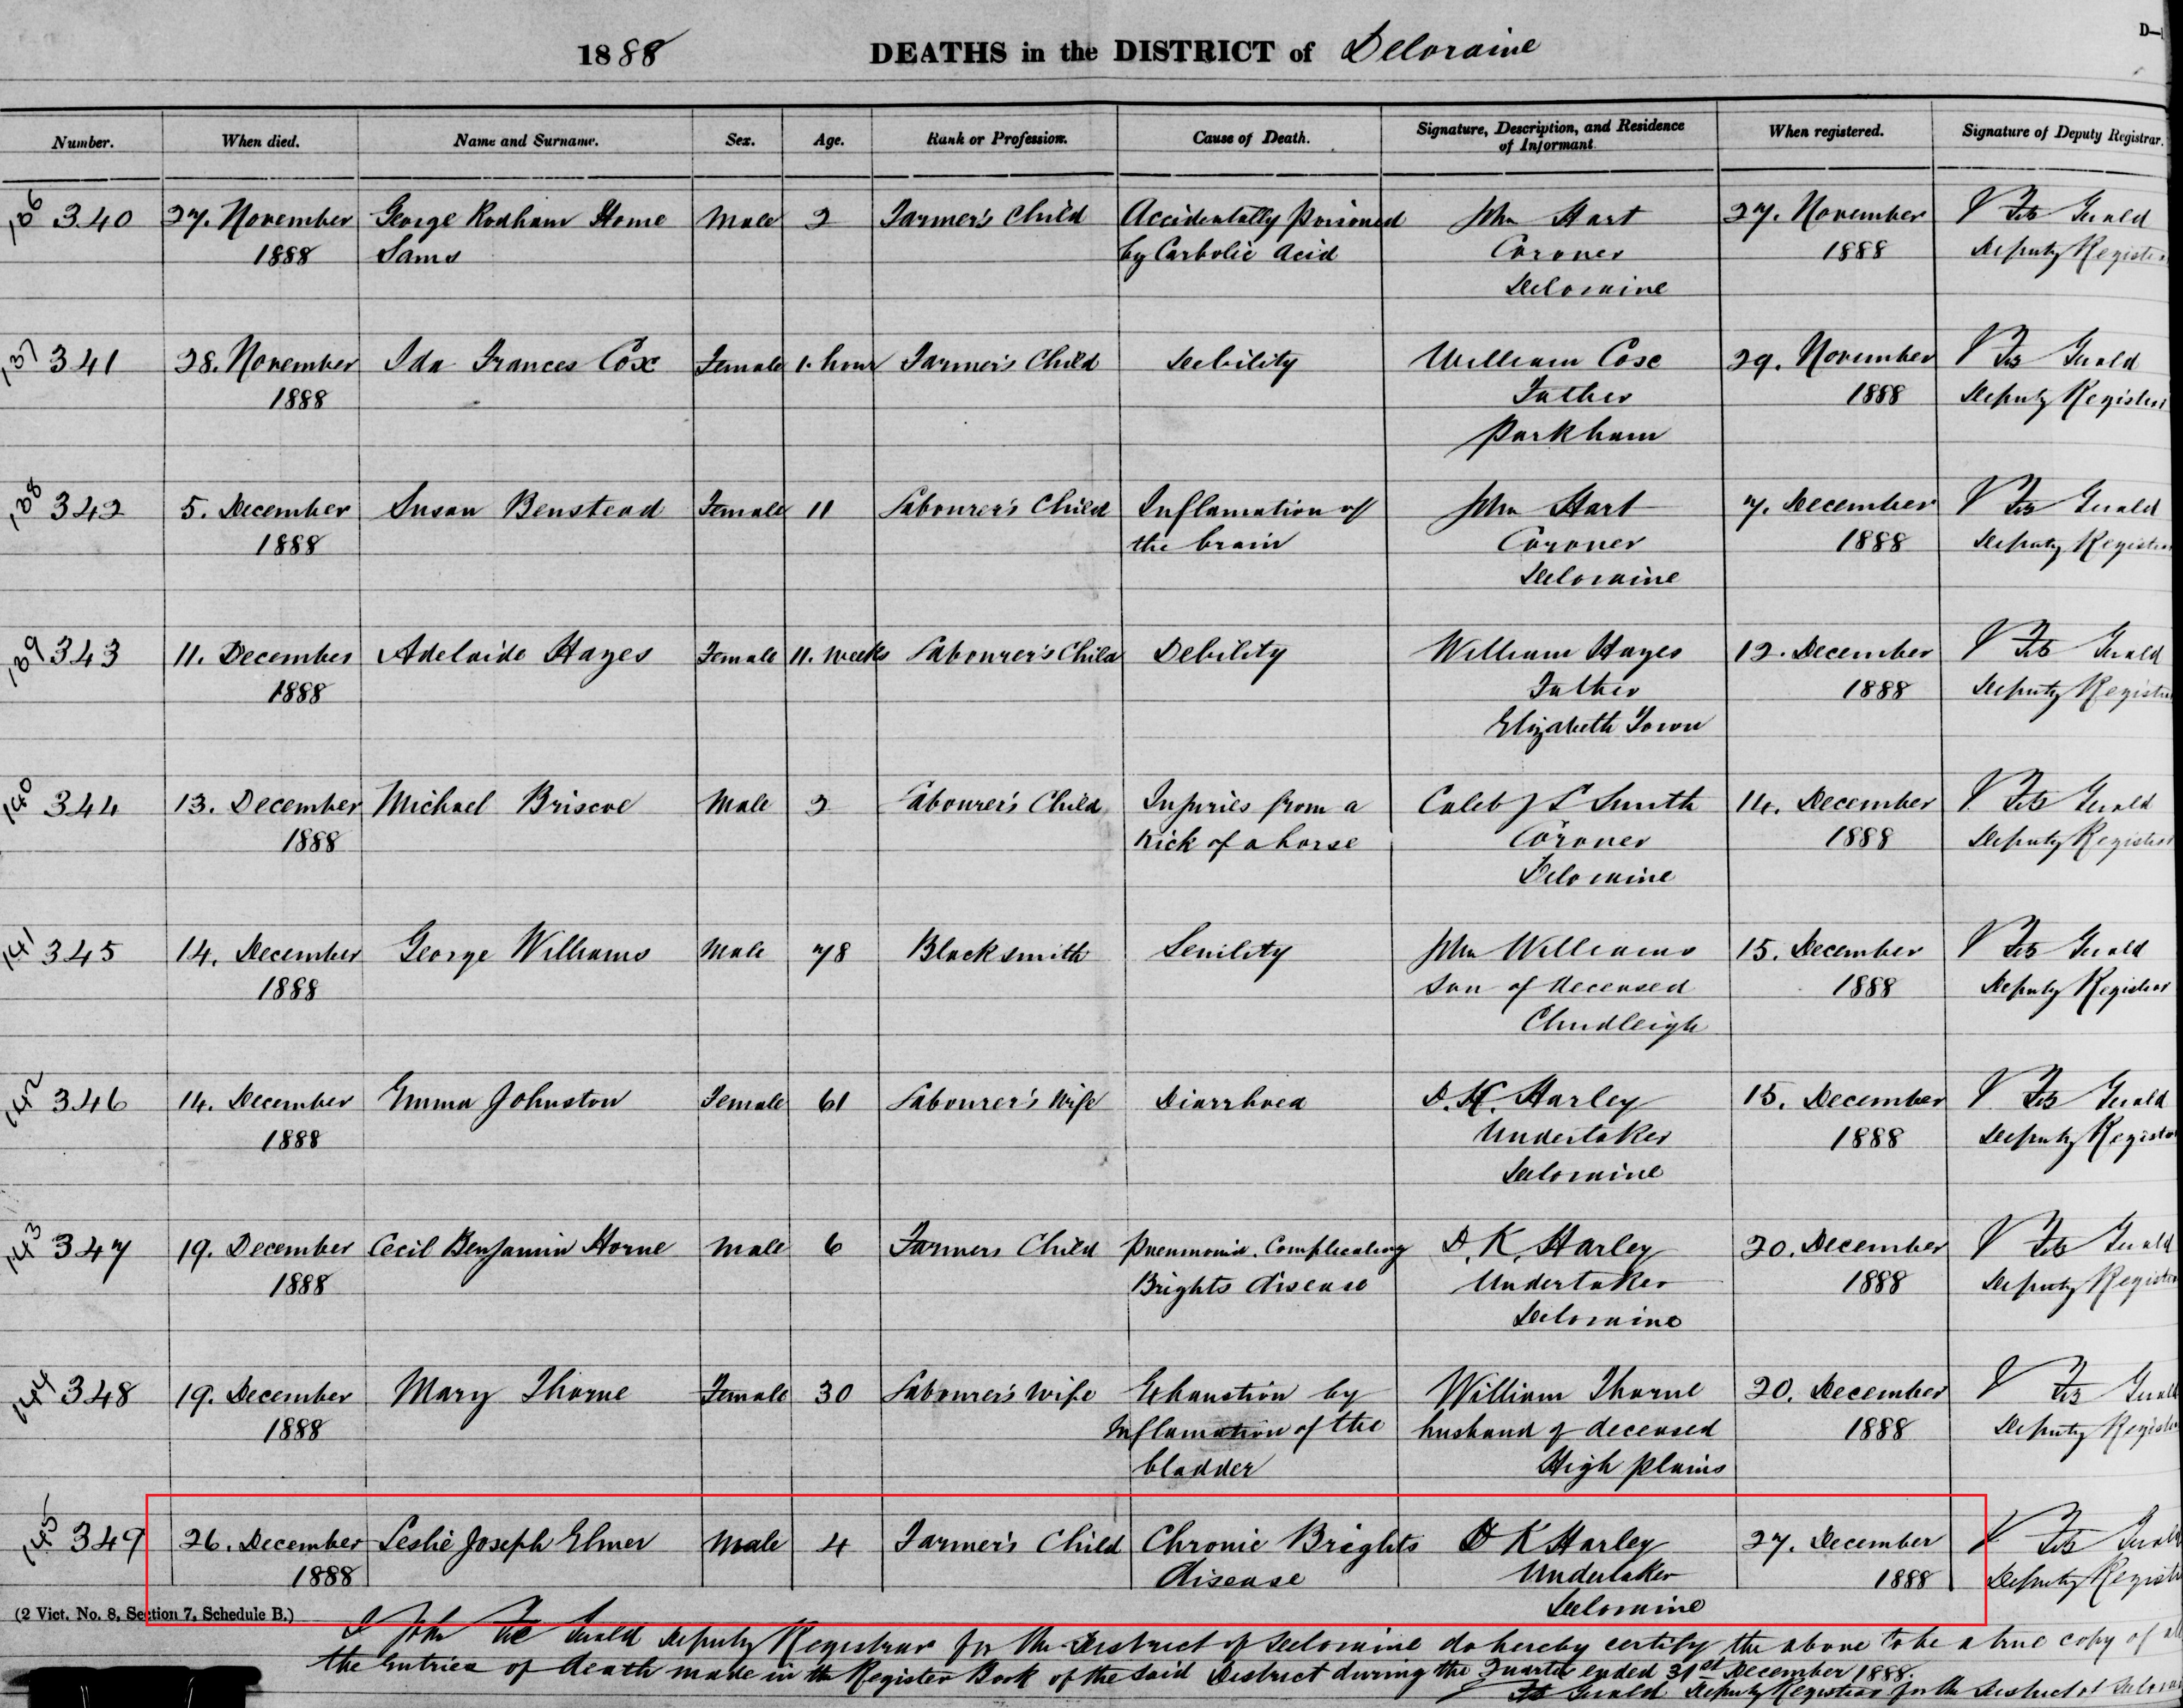 D—
1888 DEATHS in the DISTRICT of Deloraine
Number. When died. Name and Surname. Sex. Age. Rank or Profession. Cause of Death. Signature, Description, and Residence of Informant. When registered. Signature of Deputy Registrar.
136 340 27. November George Rodham Home Male 2 Farmer's Child Accidentally Poisoned John Hart 27. November J Fitz Gerald
1888 Sams by Carbolic Acid Coroner 1888 Deputy Registrar
Deloraine
137 341 28. November Ida Frances Cox Female 1. hour Farmer's Child Debility William Cox 29. November J Fitz Gerald
1888 Father 1888 Deputy Registrar
Parkham
138 342 5. December Susan Benstead Female 11 Labourer's Child Inflamation of John Hart 7. December J Fitz Gerald
1888 the brain Coroner 1888 Deputy Registrar
Deloraine
139 343 11. December Adelaide Hayes Female 11. weeks Labourer's Child Debility William Hayes 12. December J Fitz Gerald
1888 Father 1888 Deputy Registrar
Elizabeth Town
140 344 13. December Michael Briscoe Male 2 Labourer's Child Injuries from a Caleb J S Smith 14. December J Fitz Gerald
1888 kick of a horse Coroner 1888 Deputy Registrar
Deloraine
141 345 14. December George Williams Male 78 Blacksmith Senility John Williams 15. December J Fitz Gerald
1888 Son of deceased 1888 Deputy Registrar
Chudleigh
142 346 14. December Emma Johnston Female 61 Labourer's Wife Diarrhoea D. K. Harley 15. December J Fitz Gerald
1888 Undertaker 1888 Deputy Registrar
Deloraine
143 347 19. December Cecil Benjamin Horne Male 6 Farmers Child Pneumonia. Complicating D. K. Harley 20. December J Fitz Gerald
1888 Brights disease Undertaker 1888 Deputy Registrar
Deloraine
144 348 19. December Mary Thorne Female 30 Labourer's Wife Exhaustion by William Thorne 20. December J Fitz Gerald
1888 Inflamation of the husband of deceased 1888 Deputy Registrar
bladder High Plains
145 349 26. December Leslie Joseph Elmer Male 4 Farmer's Child Chronic Brights D K Harley 27. December J Fitz Gerald
1888 disease Undertaker 1888 Deputy Registrar
(2 Vict. No. 8, Section 7, Schedule B.) Deloraine
I John Fitz Gerald Deputy Registrar for the District of Deloraine do hereby certify the above to be a true copy of all
the Entries of death made in the Register Book of the said District during the Quarter ended 31st December 1888.
J Fitz Gerald Deputy Registrar for the District of Deloraine